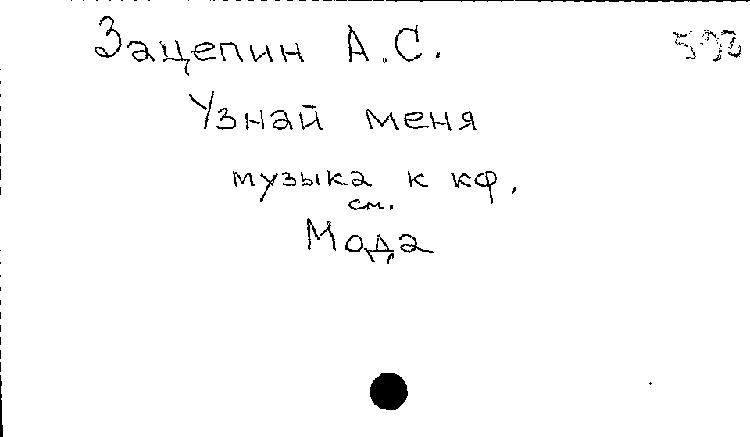 Зацепин А.С.
Узнай меня
музыка к кф.
см.
Мода